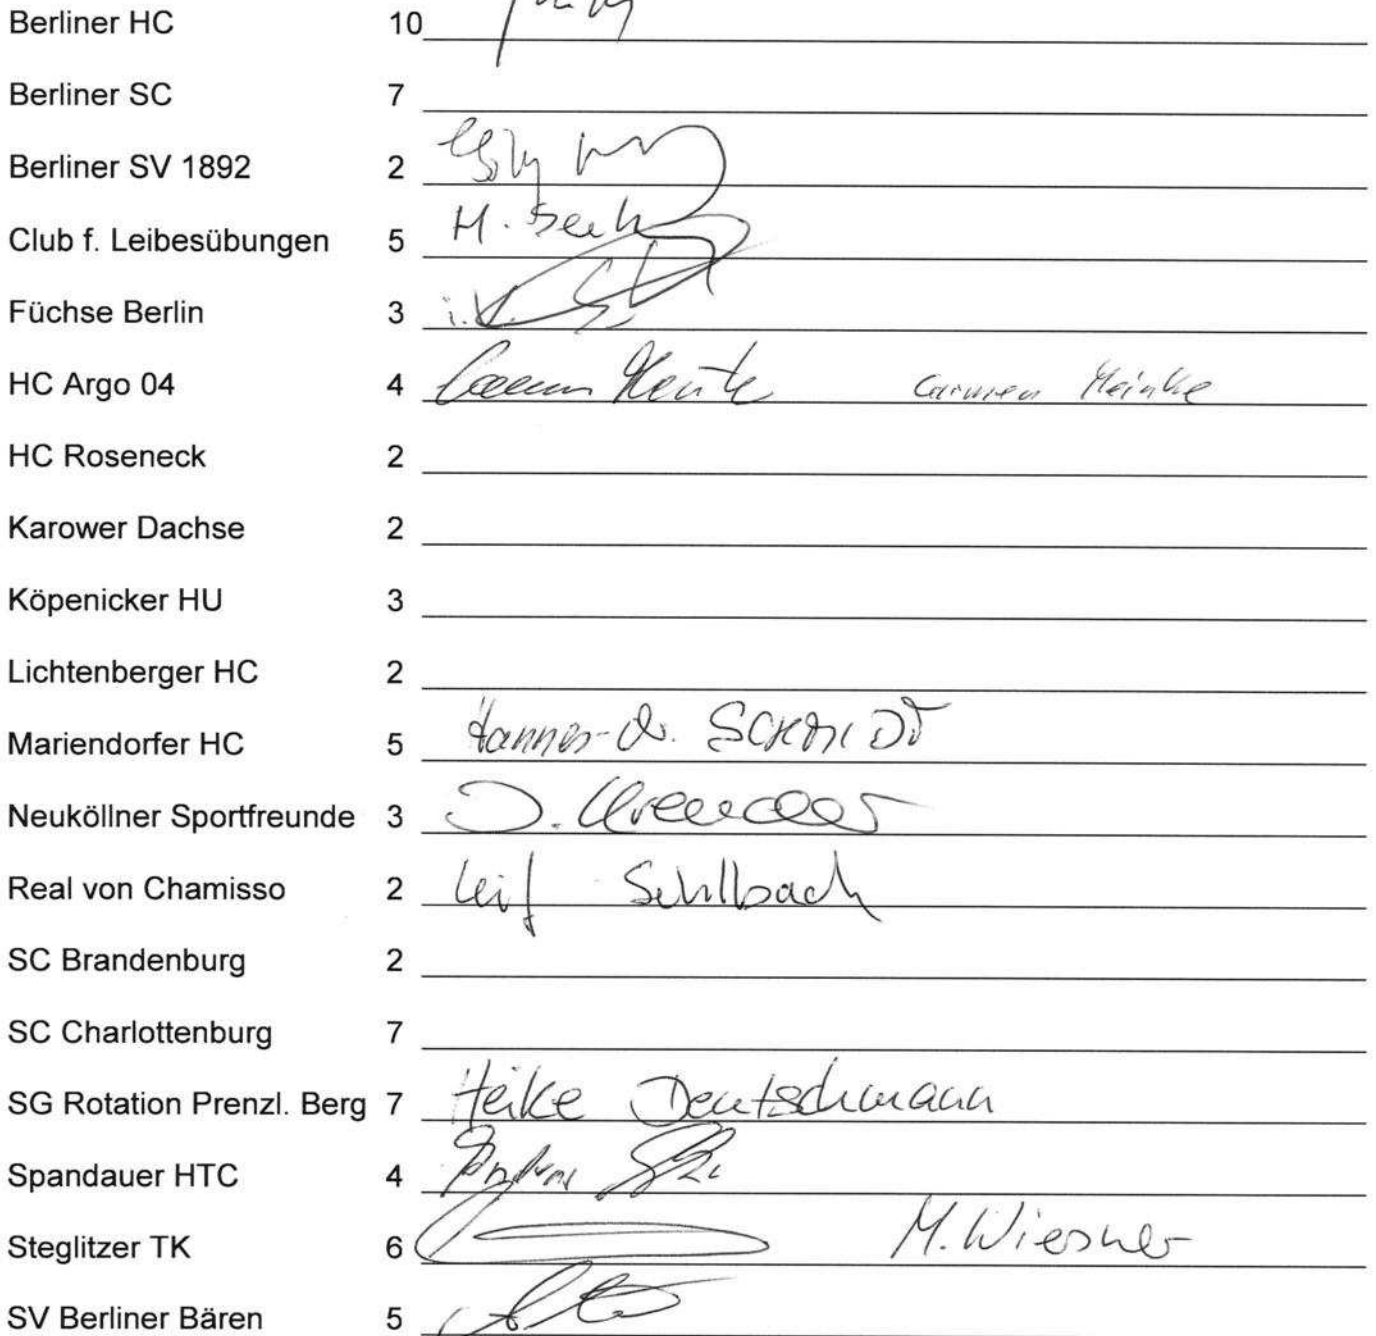 Berliner HC 10
Berliner SC 7
Berliner SV 1892 2
Club f. Leibesübungen 5 H.
Füchse Berlin 3 i.V.
HC Argo 04 4 Carmen Meinke
HC Roseneck 2
Karower Dachse 2
Köpenicker HU 3
Lichtenberger HC 2
Mariendorfer HC 5 SCHMIDT
Neuköllner Sportfreunde 3
Real von Chamisso 2 Leif
SC Brandenburg 2
SC Charlottenburg 7
SG Rotation Prenzl. Berg 7 Heike Deutschmann
Spandauer HTC 4
Steglitzer TK 6 M. Wiesner
SV Berliner Bären 5